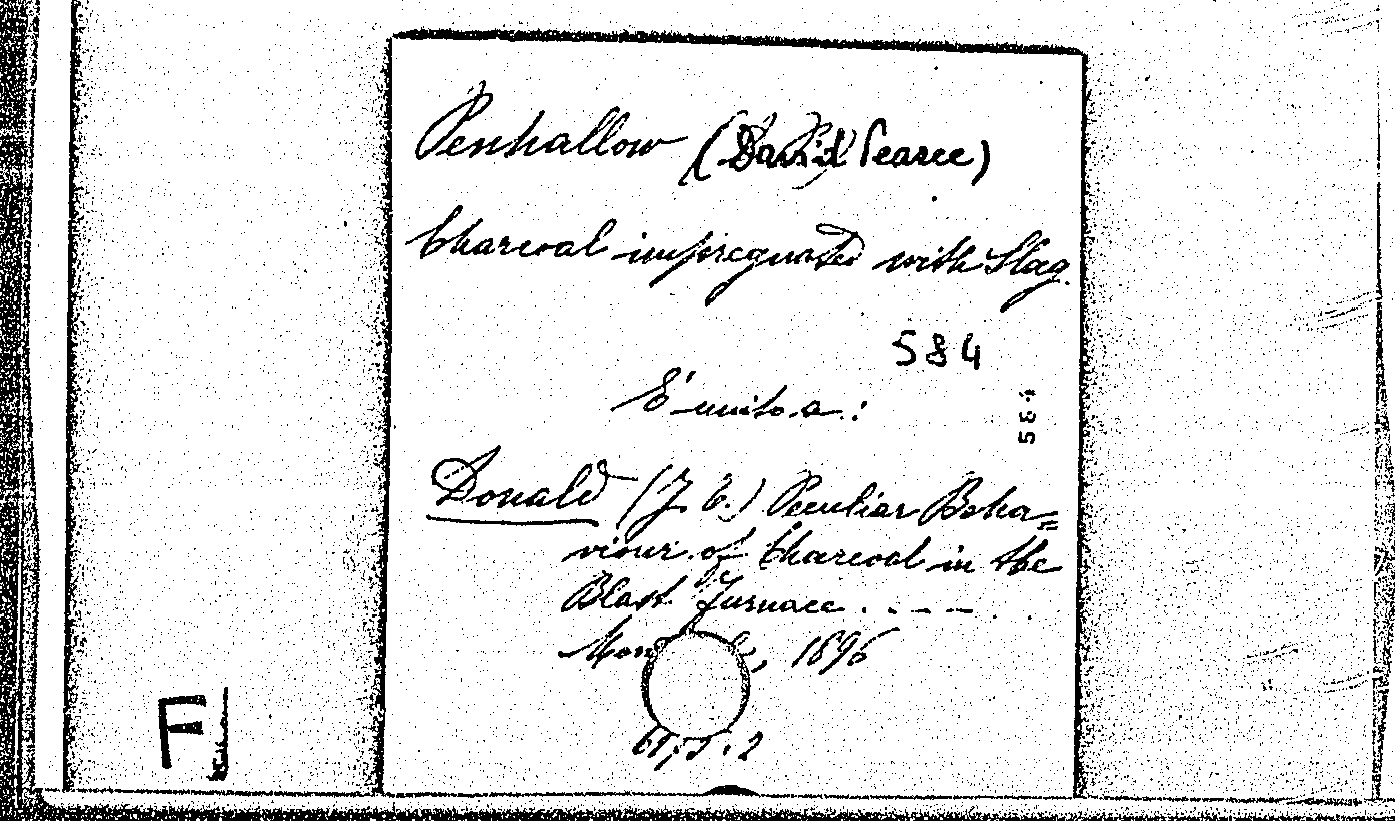 Penhallow (David Pearce)
Charcoal impregnated with Slag.
584
584
È unito a:
Donald (J. T.) Peculiar Beha=
viour of Charcoal in the
Blast Furnace . - - - . .
1896
F